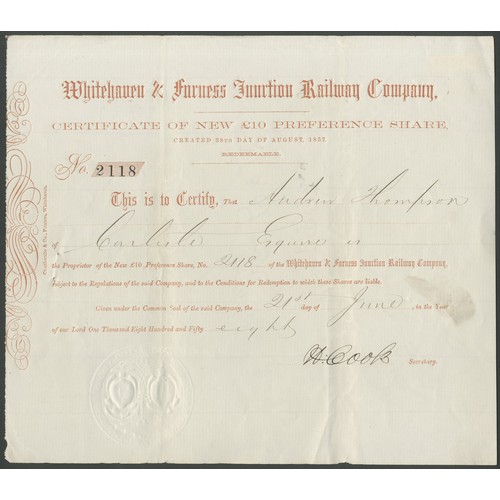 Whitehaven & Furness Junction Railway Company,
CERTIFICATE OF NEW £10 PREFERENCE SHARE,
CREATED 28TH DAY OF AUGUST, 1857.
REDEEMABLE.
No. 2118
This is to Certify, That Andrew Thompson
of Carlisle Esquire is
the Proprietor of the New £10 Preference Share, No. 2118 of the Whitehaven & Furness Junction Railway Company,
subject to the Regulations of the said Company, and to the Conditions for Redemption to which these Shares are liable.
Given under the Common Seal of the said Company, the 21st day of June in the Year
of our Lord One Thousand Eight Hundred and Fifty eight
H. Cook Secretary.
& Co., Printers, Whitehaven.